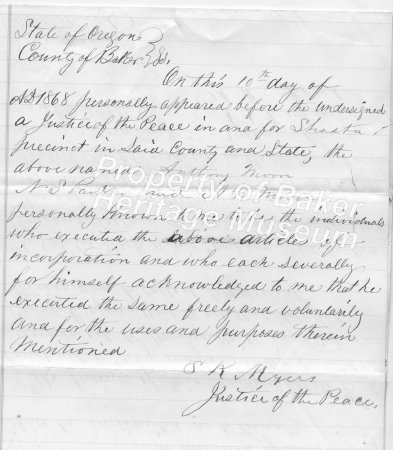 State of Oregon }
County of Baker } SS.
On this 10th day of
AD 1868 personally appeared before the undersigned
a Justice of the Peace in and for Shasta
precinct in Said County and State, the
above named Anthony Moon
N. S. and
personally known to me to be the individuals
who executed the above articles of
incorporation and who each severally
for himself acknowledged to me that he
executed the same freely and voluntarily
and for the uses and purposes therein
Mentioned
S K Myers
Justice of the Peace.
Property of Baker
Heritage Museum